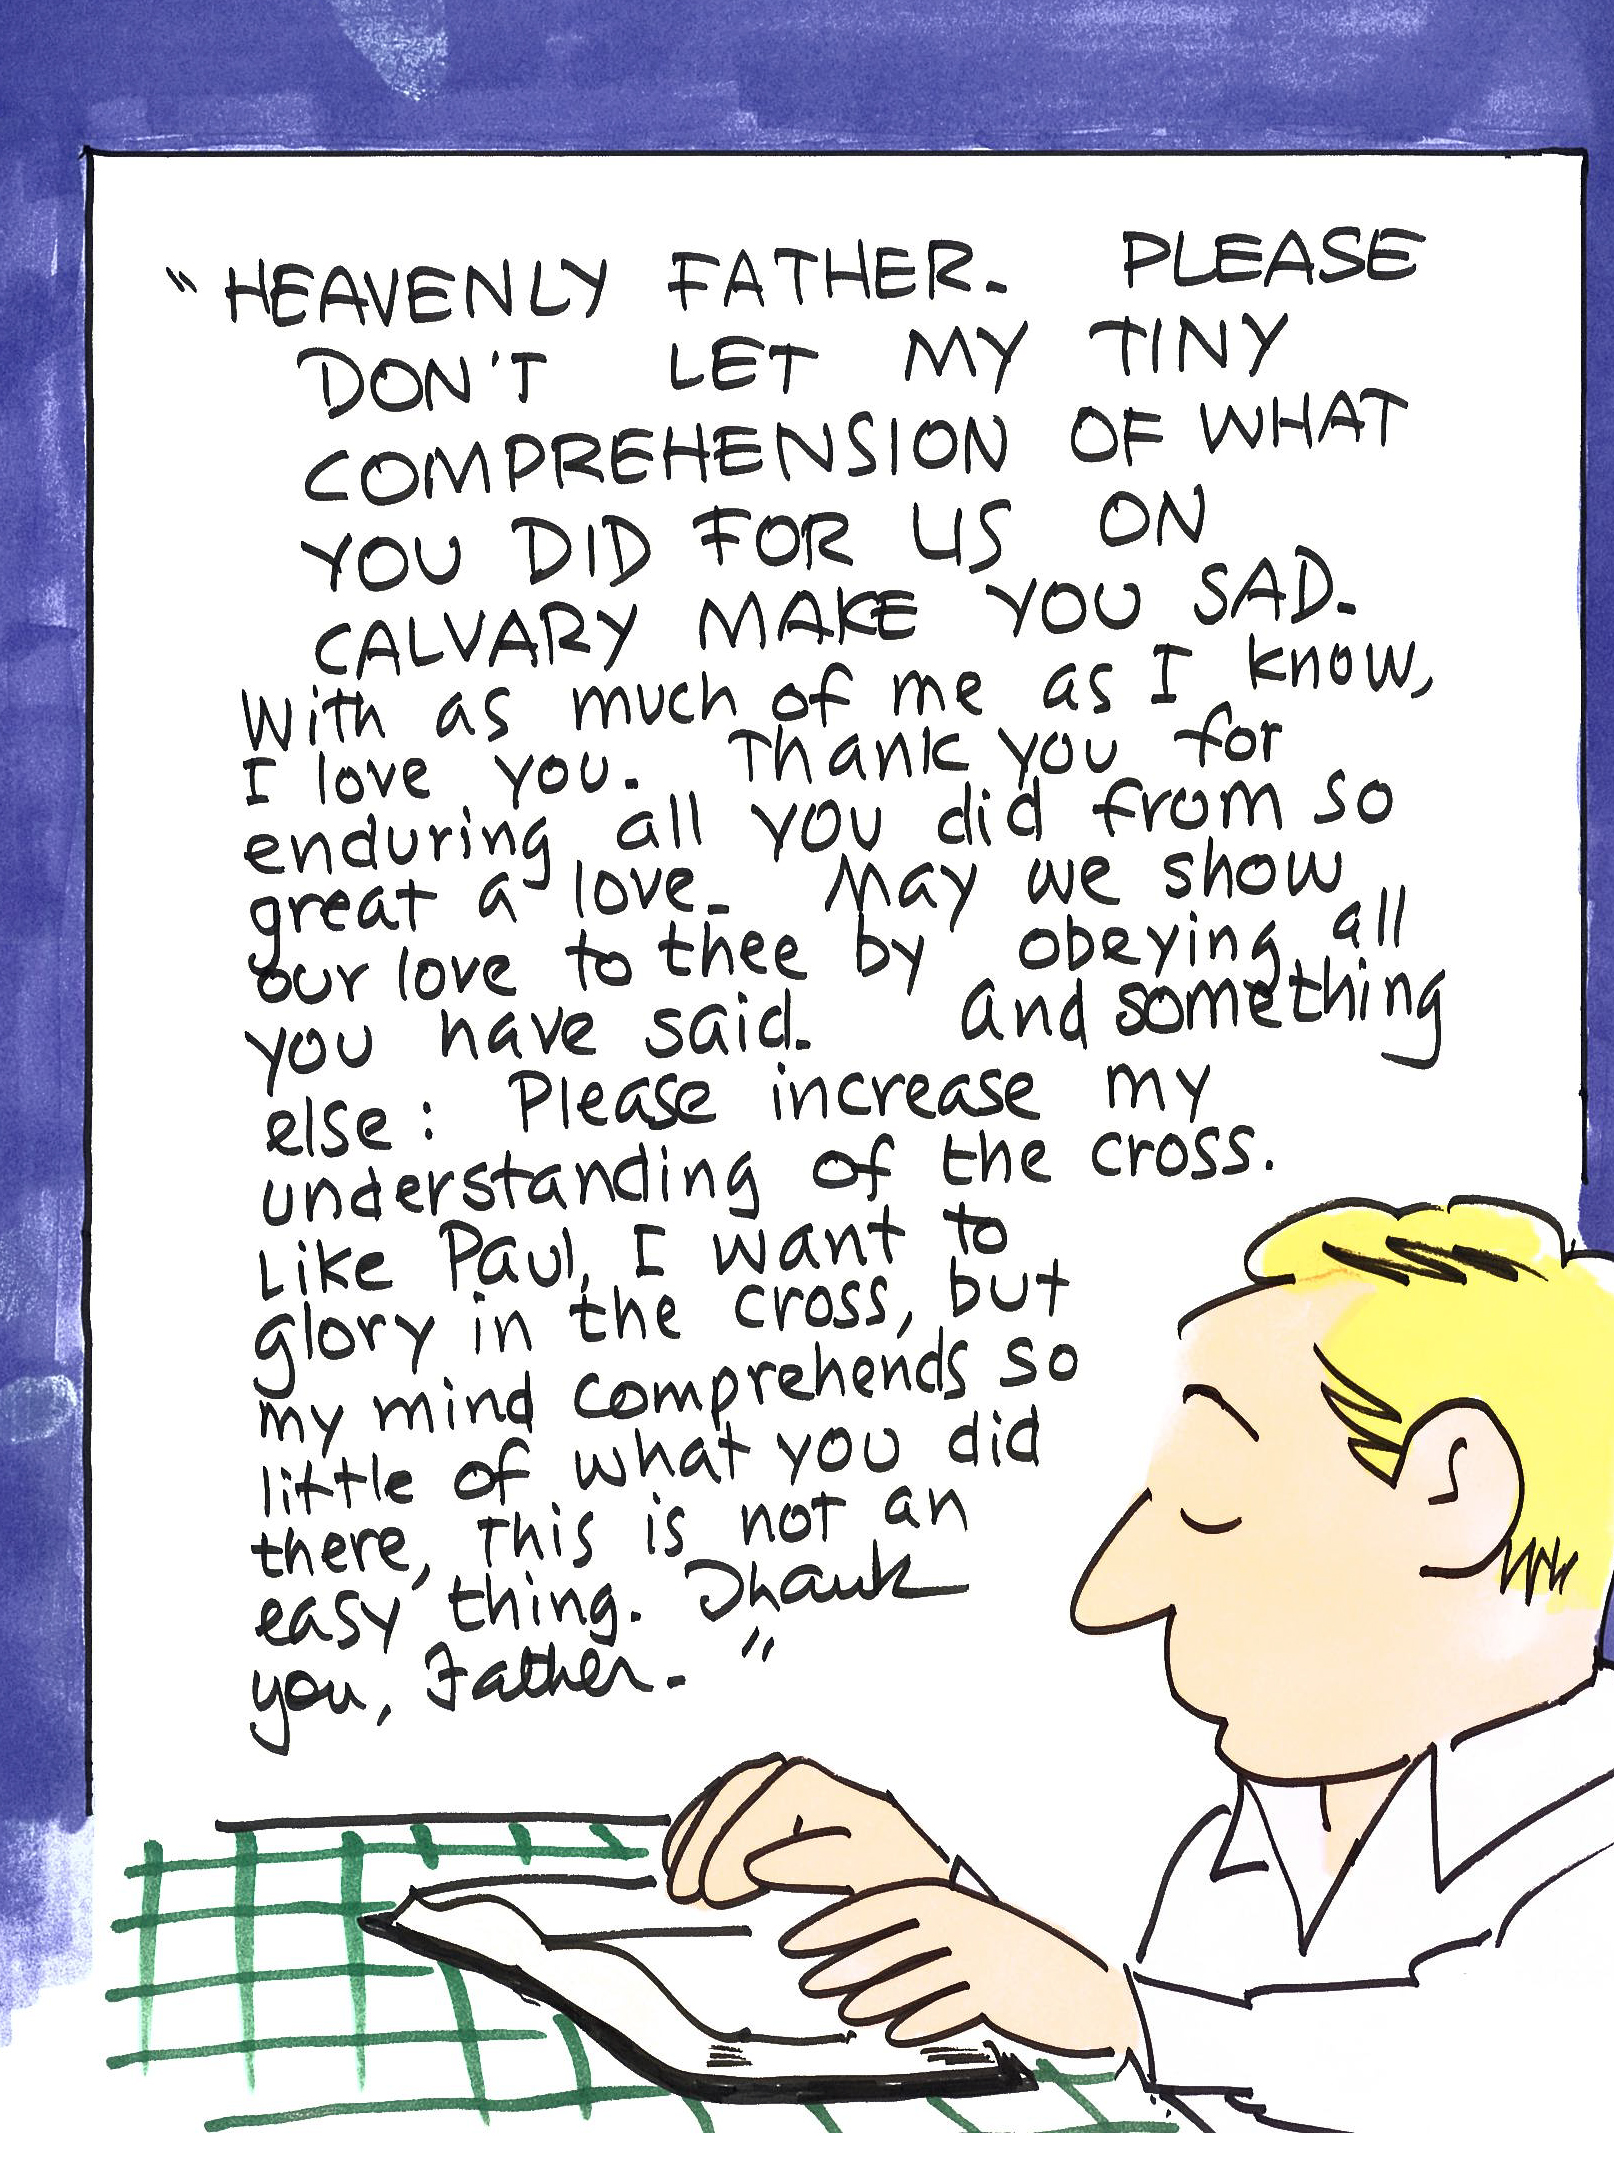 "HEAVENLY FATHER. PLEASE
DON'T LET MY TINY
COMPREHENSION OF WHAT
YOU DID FOR US ON
CALVARY MAKE YOU SAD.
With as much of me as I know,
I love you. Thank you for
enduring all you did from so
great a love. May we show
our love to thee by obeying all
you have said. And something
else: Please increase my
understanding of the cross.
Like Paul, I want to
glory in the cross, but
my mind comprehends so
little of what you did
there, This is not an
easy thing. Thank
you, Father."